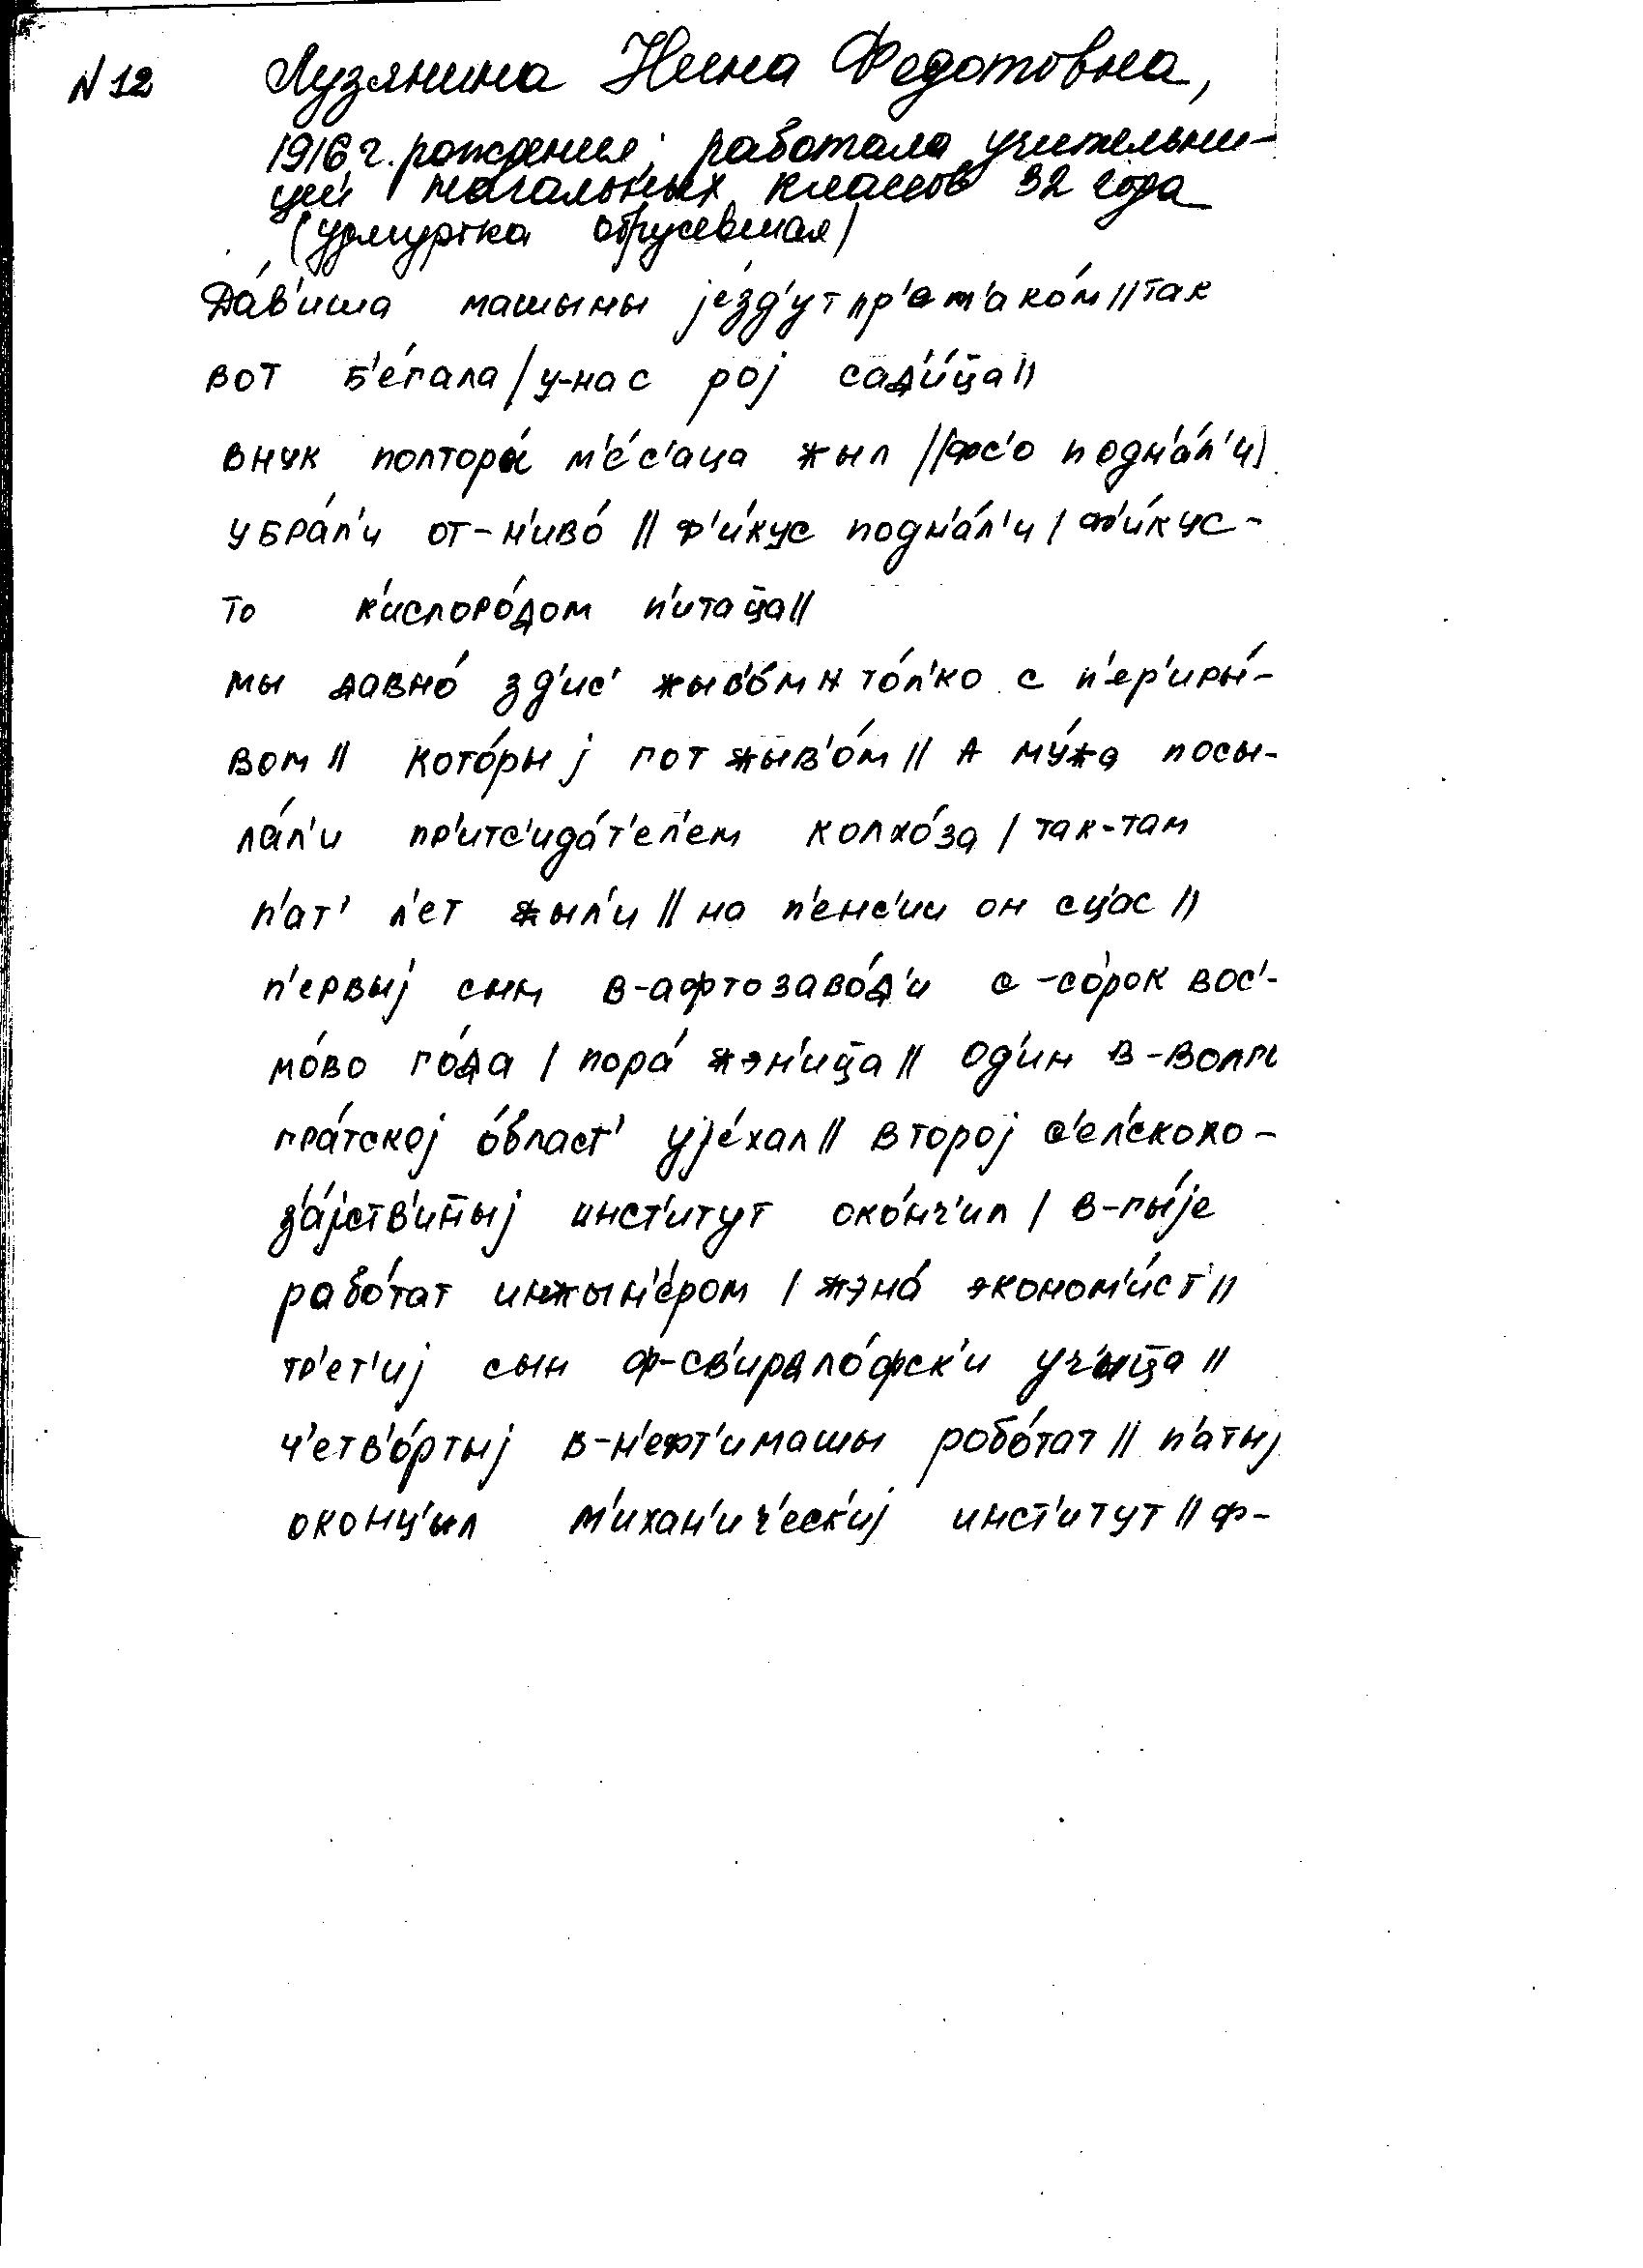 N 12 Лузянина Нина Федотовна,
1916 г. рождения; работала учительни-
цей начальных классов 32 года
(удмуртка обрусевшая)
Да́в'иша машыны jе́зд'ут пр'ам'ако́м // так
вот б'е́гала / у-нас роj сад'и́ц̄а //
внук полторы́ м'е́с'аца жыл / (фс'о подн'а́л'и)
убра́л'и от-н'иво́ // ф'и́кус подн'а́л'и / ф'и́кус-
то к'ислоро́дом п'итац̄а //
мы давно́ зд'ис' жыв'о́м // то́л'ко с п'ер'иры́-
вом // кото́рыj гот жыв'о́м // А му́жа посы-
ла́л'и пр'итс'ида́т'ел'ем колхо́за / так-там
п'ат' л'ет жыл'и // на п'енс'ии он сц'ас //
п'ервыj сын в-афтозаво́д'и с-со́рок вос'-
мо́во го́да / пора́ жэн'иц̄а // од'ин в-волго
гра́тскоj о́бласт' уjе́хал // второj с'ел'скохо-
з'а́jств'ин̄ыj инст'итут око́нч'ил / в-гы́jе
рабо́тат инжын'е́ром / жэна́ эконом'и́ст //
тр'ет'иj сын ф-св'ирдло́фск'и уч'ыц̄а //
ч'етв'о́ртыj в-н'ефт'имашы робо́тат // п'атыj
оконц'ыл м'ихан'ич'еск'иj инст'итут // ф-